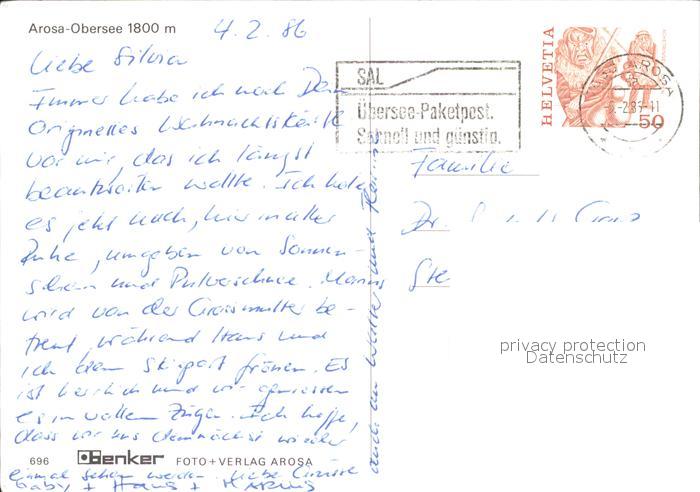 Arosa-Obersee 1800 m
4.2.86
Liebe Silvia
Immer habe ich noch Dein
originelles Weihnachtskärtli
vor mir, das ich längst
beantworten wollte. Ich hole
es jetzt nach, hier in aller
Ruhe, umgeben von Sonnen-
schein und Pulverschnee. Marius
wird von der Grossmutter be-
treut, während Hans und
ich dem Skisport frönen. Es
ist herrlich und wir geniessen
es in vollen Zügen. Ich hoffe,
dass wir uns demnächst wieder
einmal sehen werden. Liebe Grüsse
Gaby + Hans + Marius
auch an Walter und
696 Benker FOTO+VERLAG AROSA
SAL
Übersee-Paketpost.
Schnell und günstig.
HELVETIA
50
AROSA
Familie
Dr.
privacy protection
Datenschutz